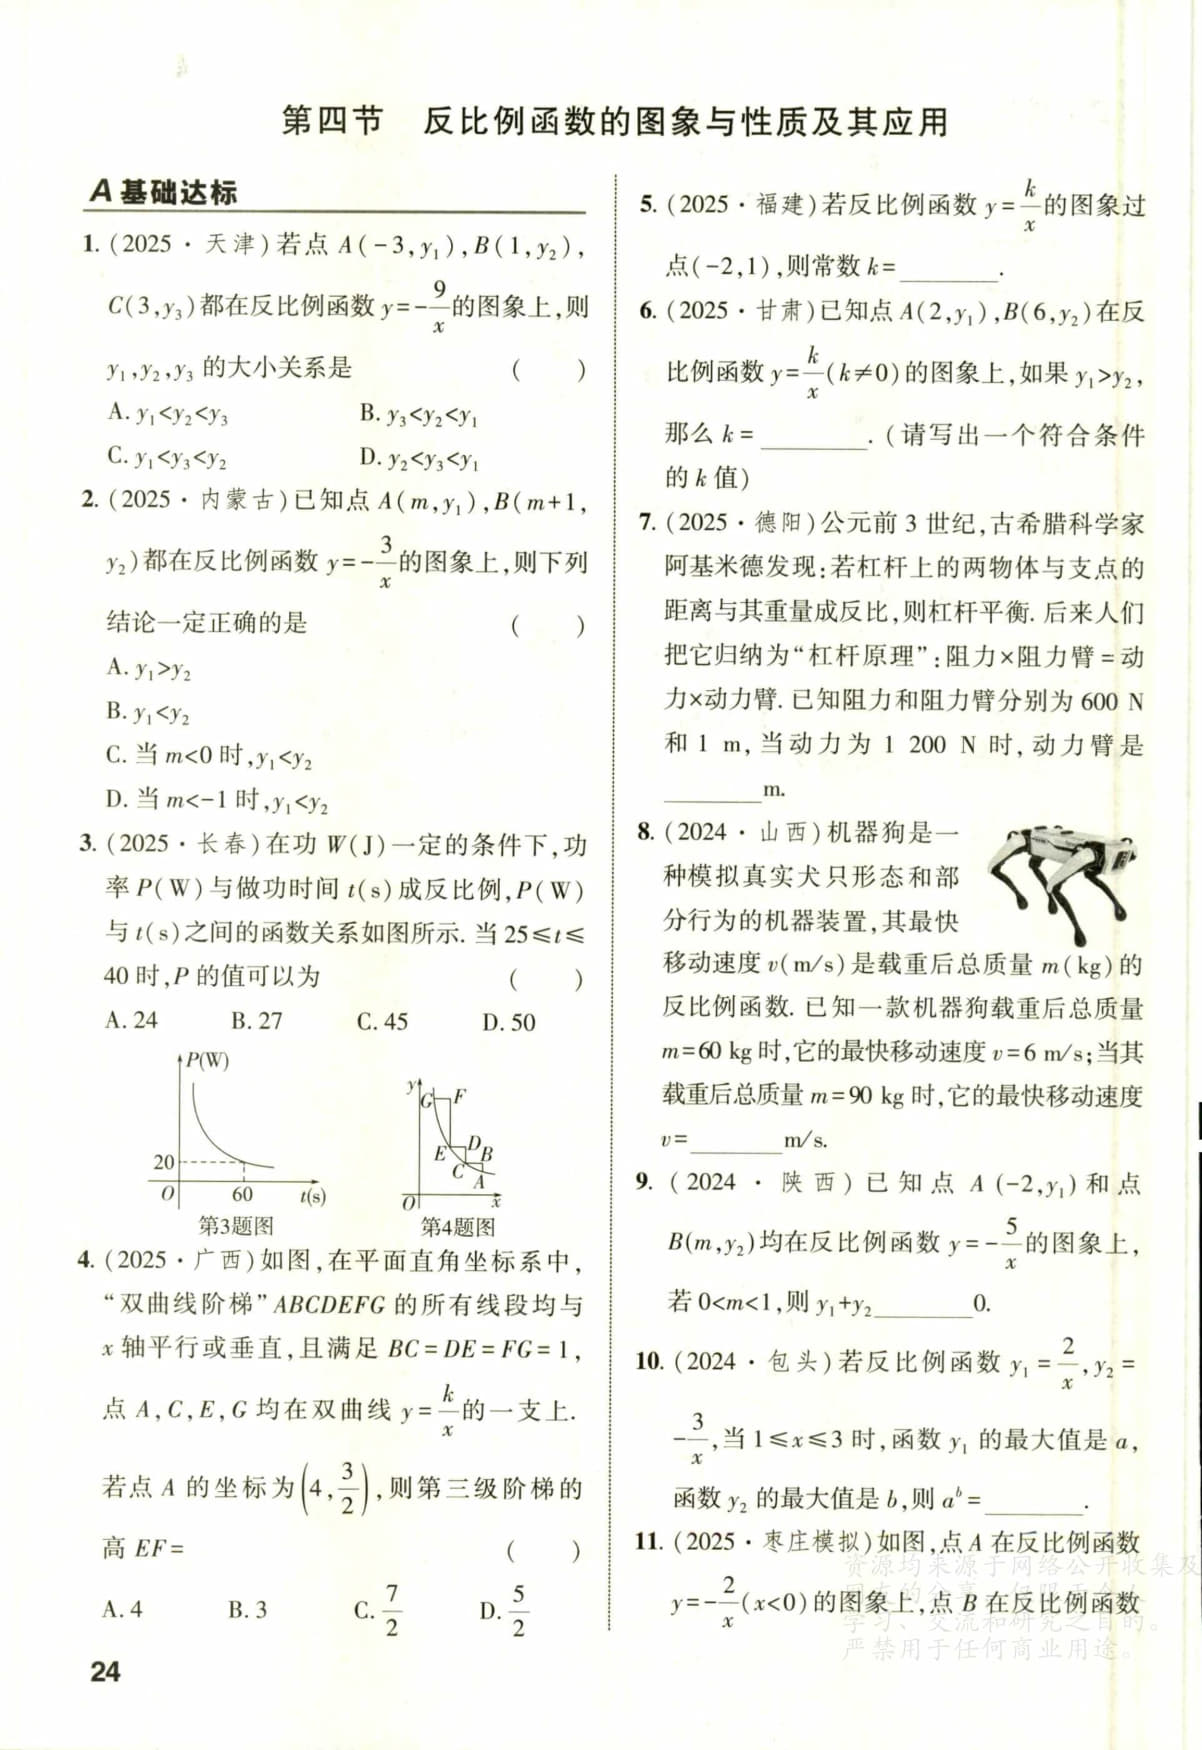 第四节 反比例函数的图象与性质及其应用
A 基础达标
1. (2025·天津)若点 A(-3,y₁),B(1,y₂),
C(3,y₃)都在反比例函数 y=-9/x的图象上,则
y₁,y₂,y₃ 的大小关系是 ( )
A. y₁<y₂<y₃ B. y₃<y₂<y₁
C. y₁<y₃<y₂ D. y₂<y₃<y₁
2. (2025·内蒙古)已知点 A(m,y₁),B(m+1,
y₂)都在反比例函数 y=-3/x的图象上,则下列
结论一定正确的是 ( )
A. y₁>y₂
B. y₁<y₂
C. 当 m<0 时,y₁<y₂
D. 当 m<-1 时,y₁<y₂
3. (2025·长春)在功 W(J)一定的条件下,功
率 P(W)与做功时间 t(s)成反比例,P(W)
与 t(s)之间的函数关系如图所示. 当 25≤t≤
40 时,P 的值可以为 ( )
A. 24 B. 27 C. 45 D. 50
P(W)
20
O 60 t(s)
第3题图
y
G F
E D
C B
A
O x
第4题图
4. (2025·广西)如图,在平面直角坐标系中,
“双曲线阶梯”ABCDEFG 的所有线段均与
x 轴平行或垂直,且满足 BC=DE=FG=1,
点 A,C,E,G 均在双曲线 y=k/x的一支上.
若点 A 的坐标为(4,3/2),则第三级阶梯的
高 EF= ( )
A. 4 B. 3 C. 7/2 D. 5/2
24
5. (2025·福建)若反比例函数 y=k/x的图象过
点(-2,1),则常数 k=________.
6. (2025·甘肃)已知点 A(2,y₁),B(6,y₂)在反
比例函数 y=k/x(k≠0)的图象上,如果 y₁>y₂,
那么 k=________.(请写出一个符合条件
的 k 值)
7. (2025·德阳)公元前 3 世纪,古希腊科学家
阿基米德发现:若杠杆上的两物体与支点的
距离与其重量成反比,则杠杆平衡. 后来人们
把它归纳为“杠杆原理”:阻力×阻力臂=动
力×动力臂. 已知阻力和阻力臂分别为 600 N
和 1 m,当动力为 1 200 N 时,动力臂是
________m.
8. (2024·山西)机器狗是一
种模拟真实犬只形态和部
分行为的机器装置,其最快
移动速度 v(m/s)是载重后总质量 m(kg)的
反比例函数. 已知一款机器狗载重后总质量
m=60 kg 时,它的最快移动速度 v=6 m/s;当其
载重后总质量 m=90 kg 时,它的最快移动速度
v=________m/s.
9. (2024·陕西)已知点 A(-2,y₁)和点
B(m,y₂)均在反比例函数 y=-5/x的图象上,
若 0<m<1,则 y₁+y₂________0.
10. (2024·包头)若反比例函数 y₁=2/x,y₂=
-3/x,当 1≤x≤3 时,函数 y₁ 的最大值是 a,
函数 y₂ 的最大值是 b,则 aᵇ=________.
11. (2025·枣庄模拟)如图,点 A 在反比例函数
y=-2/x(x<0)的图象上,点 B 在反比例函数
资源均来源于网络公开收集及
学习、交流和研究之目的。
严禁用于任何商业用途。